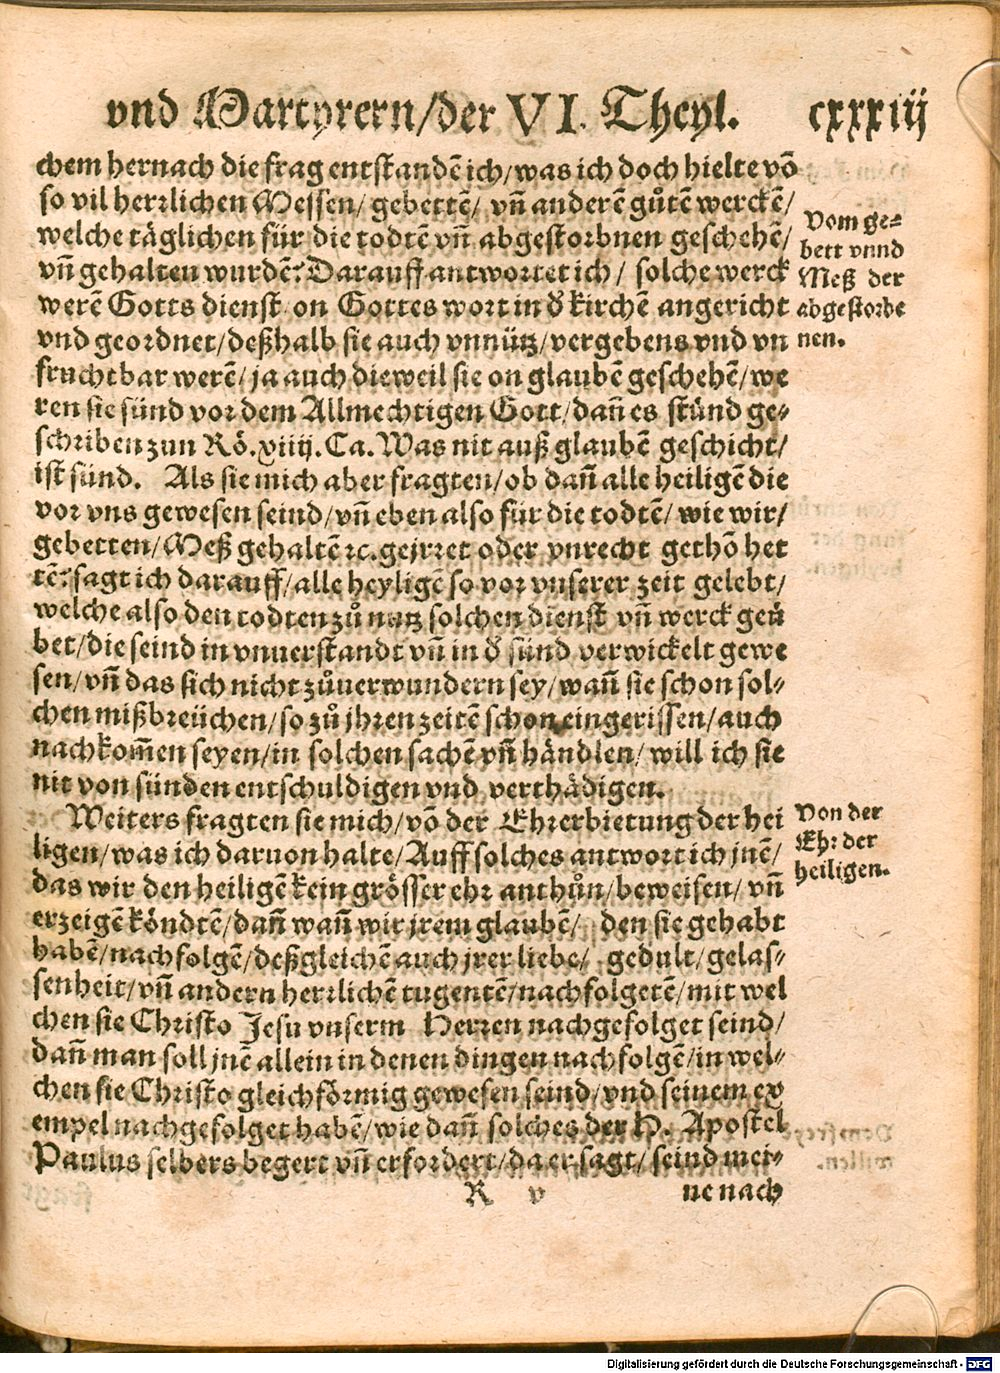 vnd Martyrern/der VI. Theyl. cxxxiij
chem hernach die frag entstandē ich/was ich doch hielte võ
so vil herꝛlichen Messen/ gebettē/ vñ anderē gůtē werckē/
welche täglichen für die todtē vñ abgestorbnen geschehē/
vñ gehalten wurdē? Darauff antwortet ich/ solche werck
werē Gotts dienst on Gottes wort in ď kirchē angericht
vnd geordnet/deßhalb sie auch vnnütz/vergebens vnd vn
fruchtbar werē/ja auch dieweil sie on glaubē geschehē/we
ren sie sünd vor dem Allmechtigen Gott/dañ es stünd ge-
schriben zun Rö.xiiij.Ca. Was nit auß glaubē geschicht/
ist sünd. Als sie mich aber fragten/ob dañ alle heiligē die
vor vns gewesen seind/vñ eben also für die todtē/wie wir/
gebetten/Meß gehaltē ꝛc.geirꝛet oder vnrecht gethõ het
tē? sagt ich darauff/alle heyligē so vor vnserer zeit gelebt/
welche also den todten zů nutz solchen dienst vñ werck geü
bet/die seind in vnuerstandt vñ in ď sünd verwickelt gewe
sen/vñ das sich nicht zůuerwundern sey/wañ sie schon sol-
chen mißbreüchen/so zů jhren zeitē schon eingerissen/auch
nachkom̃en seyen/in solchen sachē vñ händlen/will ich sie
nit von sünden entschuldigen vnd verthädigen.
Weiters fragten sie mich/võ der Ehrerbietung der hei
ligen/was ich daruon halte/Auff solches antwort ich jnē/
das wir den heiligē kein grösser ehr anthůn/beweisen/vñ
erzeigē köndtē/dañ wañ wir jrem glaubē/ den sie gehabt
habē/nachfolgē/deßgleichē auch jrer liebe/ gedult/gelas-
senheit/vñ andern herꝛlichē tugentē/nachfolgetē/mit wel
chen sie Christo Jesu vnserm Herꝛen nachgefolget seind/
dañ man soll jnē allein in denen dingen nachfolgē/in wel-
chen sie Christo gleichförmig gewesen seind/vnd seinem ex
empel nachgefolget habē/wie dañ solches der H. Apostel
Paulus selbers begert vñ erfordert/da er sagt/seind mei-
R v ne nach
Vom ge-
bett vnnd
Meß der
abgestorbe
nen.
Von der
Ehr der
heiligen.
Digitalisierung gefördert durch die Deutsche Forschungsgemeinschaft - DFG